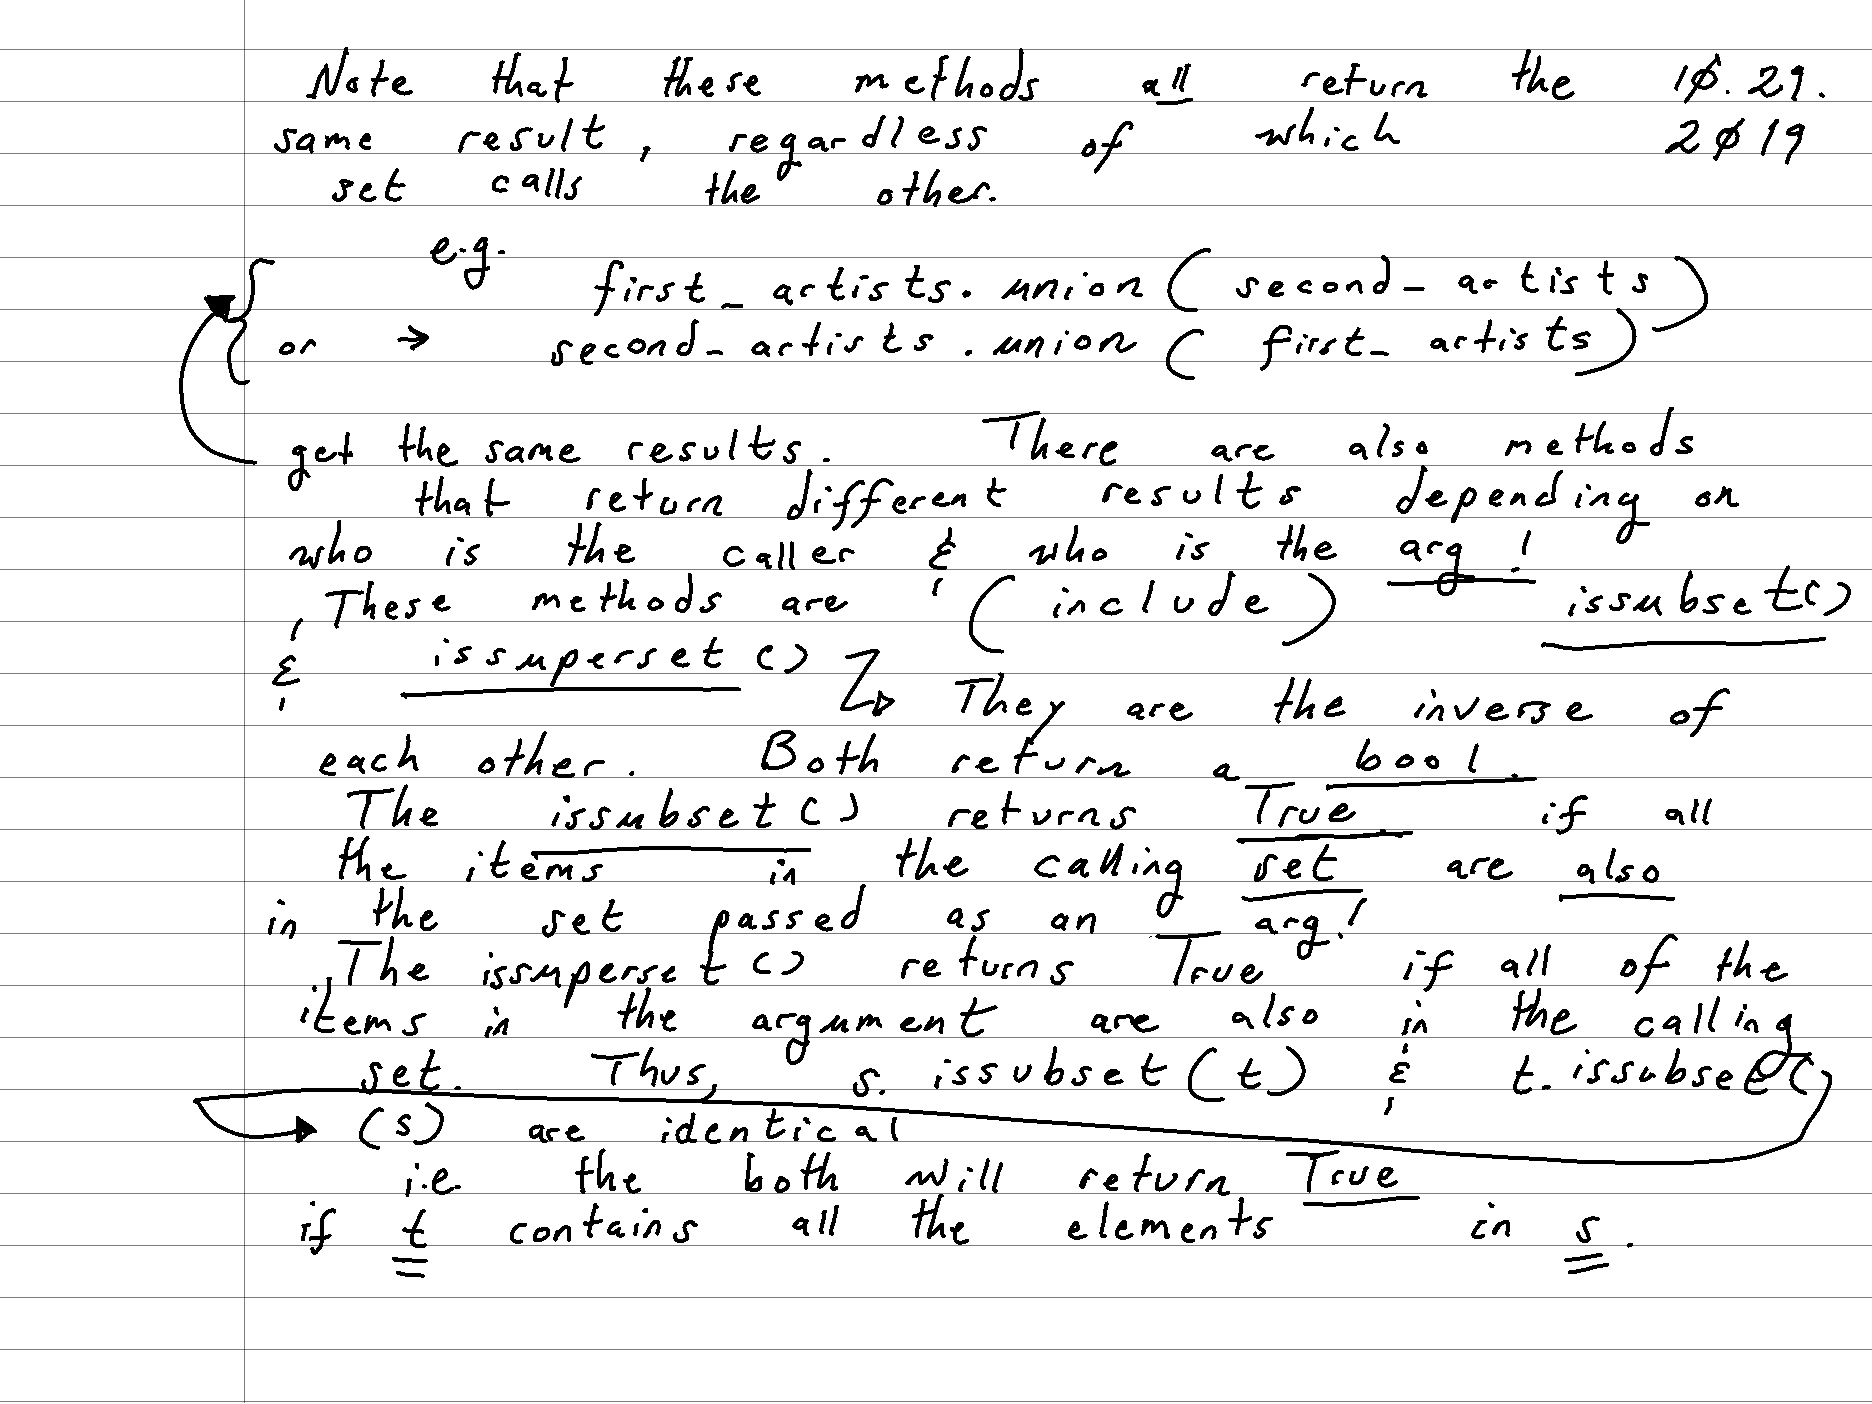 Note that these methods all return the 10.29.
same result, regardless of which 2019
set calls the other.
e.g.
first_artists.union(second_artists)
or → second_artists.union(first_artists)
get the same results. There are also methods
that return different results depending on
who is the caller & who is the arg!
These methods are (include) issubset()
& issuperset() They are the inverse of
each other. Both return a bool.
The issubset() returns True if all
the items in the calling set are also
in the set passed as an arg!
The issuperset() returns True if all of the
items in the argument are also in the calling
set. Thus, s.issubset(t) & t.issubset(
(s) are identical
i.e. the both will return True
if t contains all the elements in s.